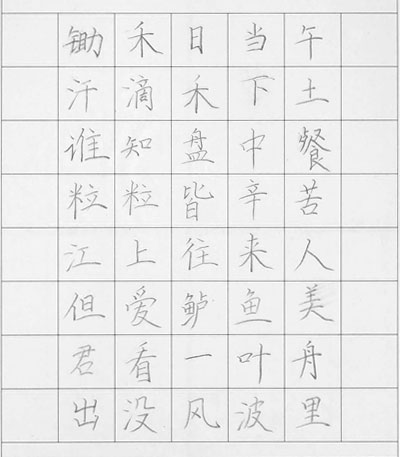 锄禾日当午
汗滴禾下土
谁知盘中餐
粒粒皆辛苦
江上往来人
但爱鲈鱼美
君看一叶舟
出没风波里